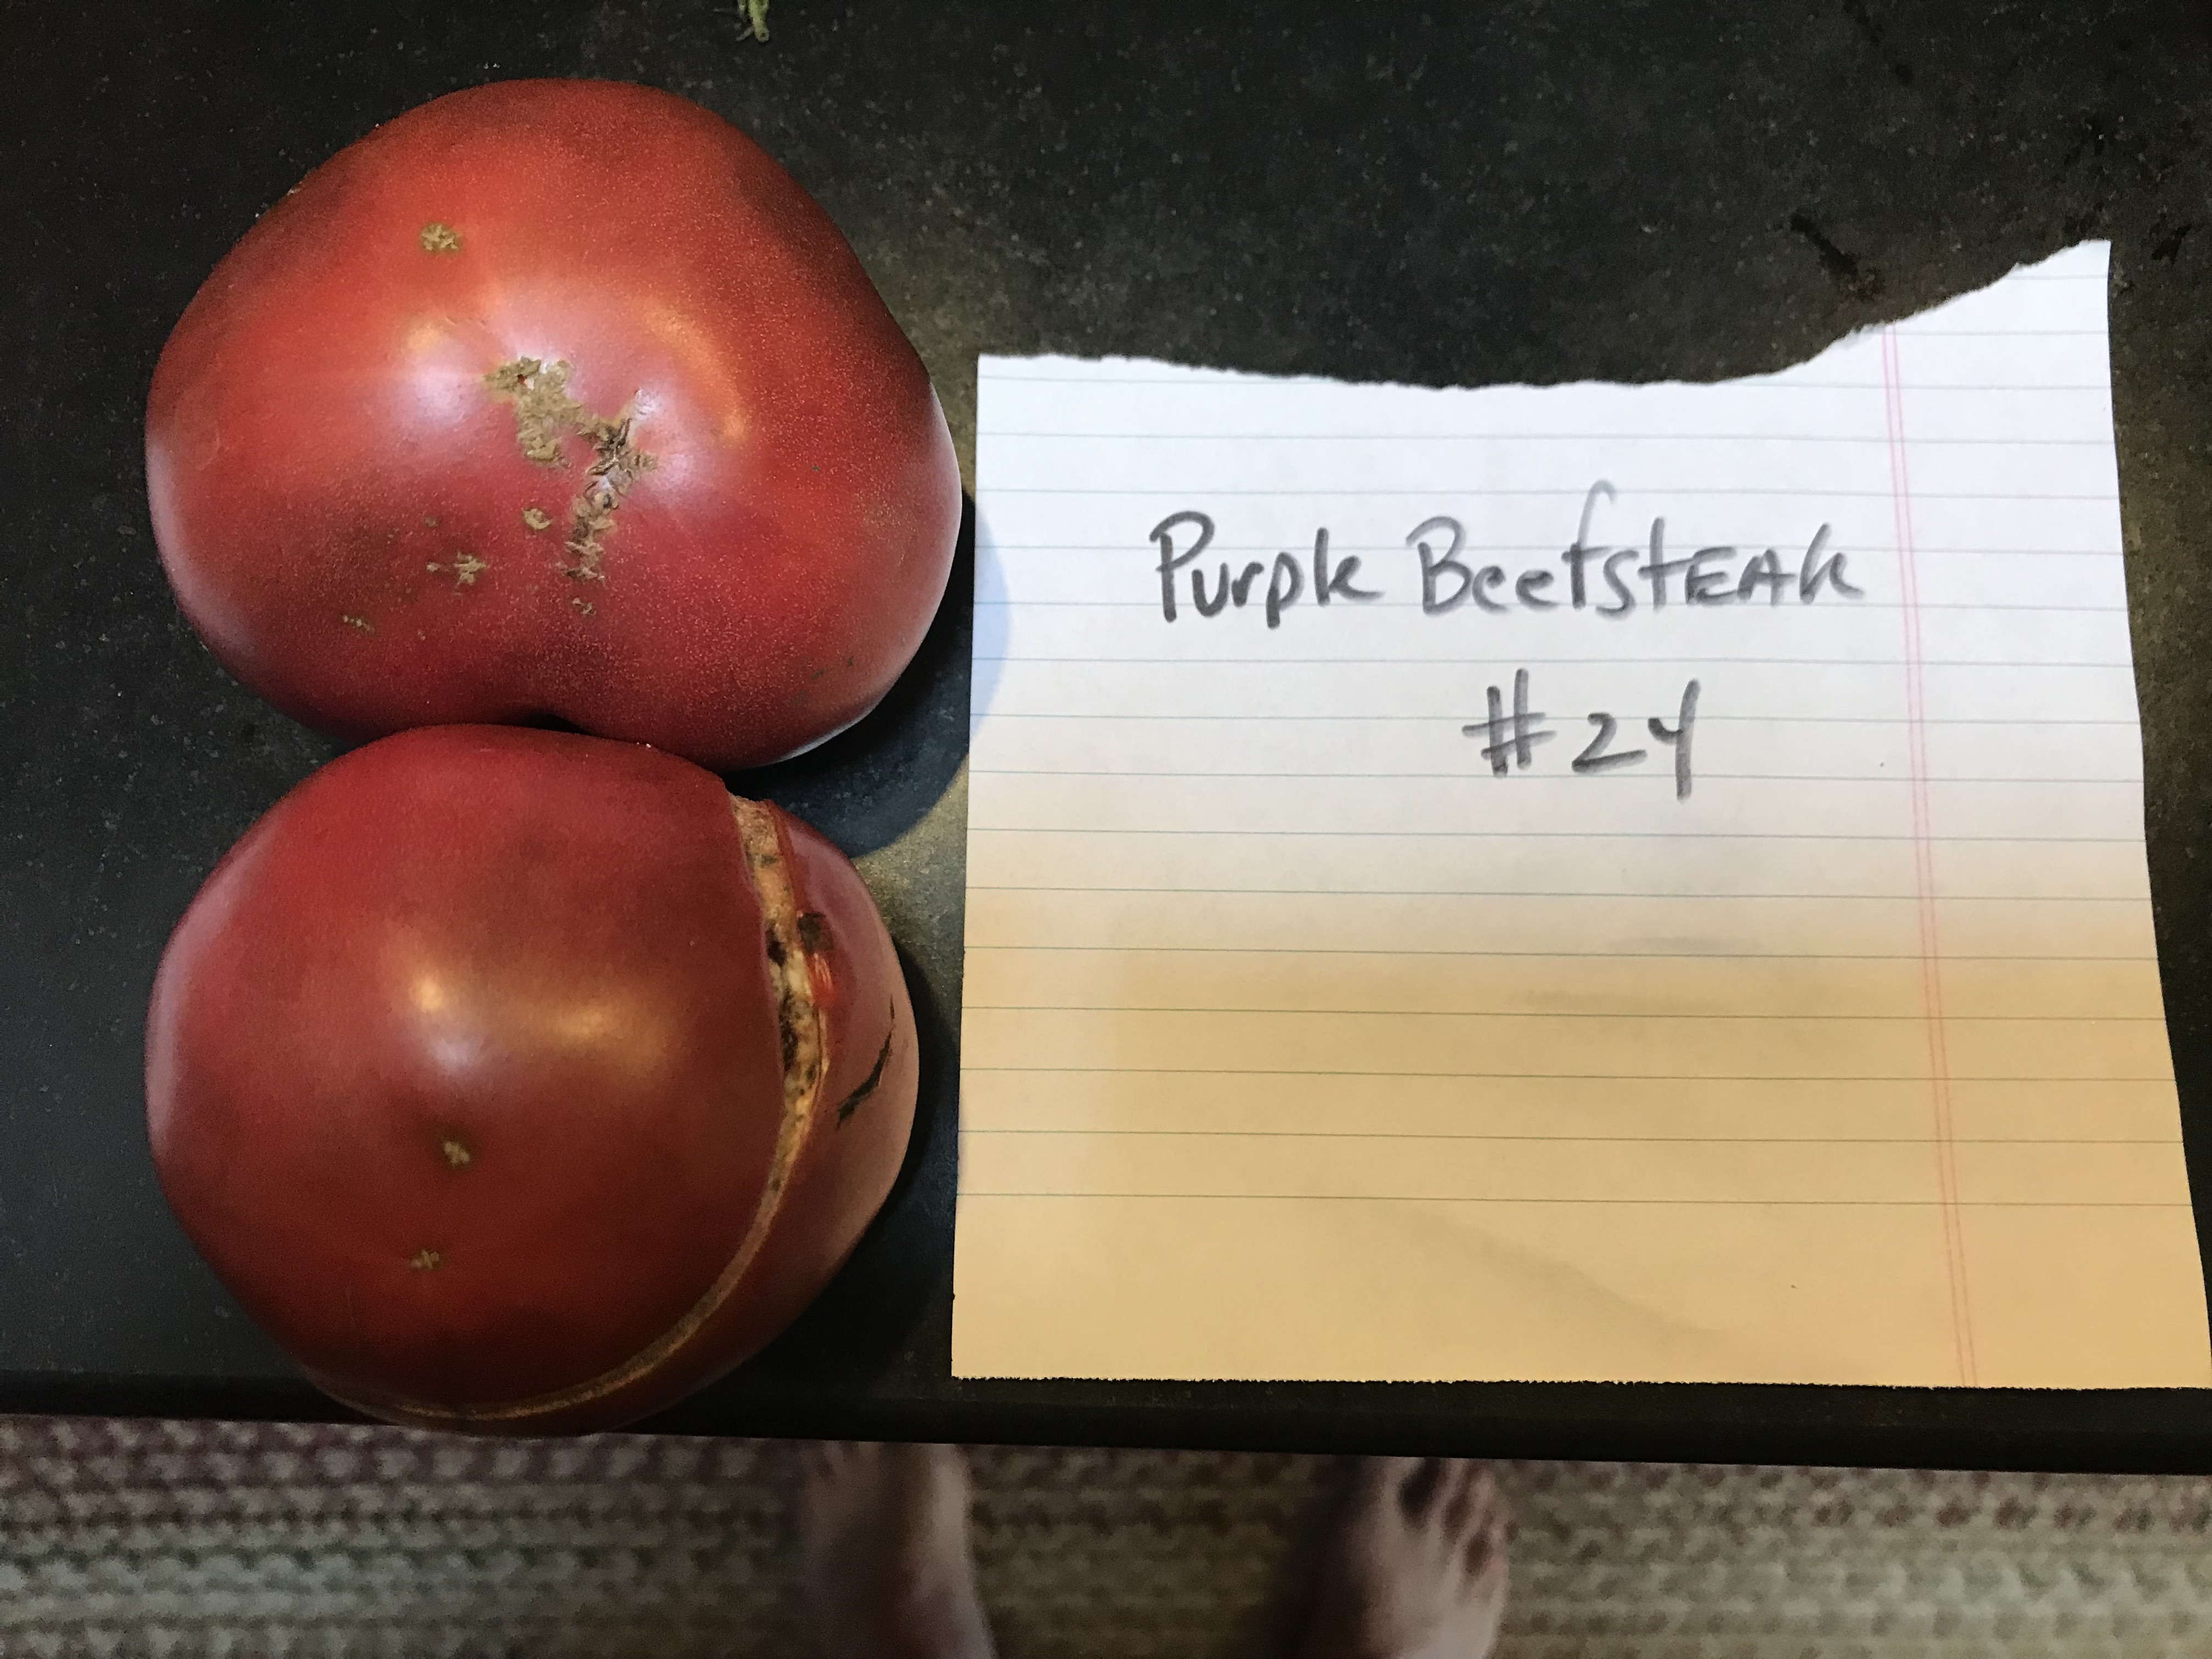 Purple BeefstEAK
#24